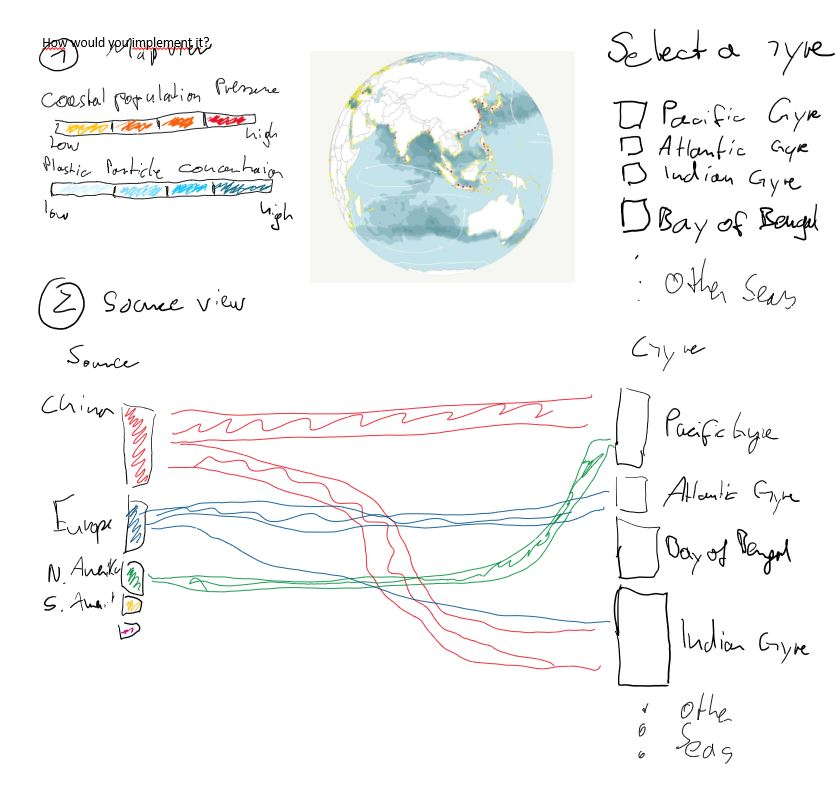 How would you implement it?
1 Map view
Coastal population Pressure
Low high
Plastic Particle concentration
low high
Select a Gyre
Pacific Gyre
Atlantic Gyre
Indian Gyre
Bay of Bengal
Other Seas
2 Source view
Source
Gyre
China
Europe
N. Amerika
S. Ameri
Pacific Gyre
Atlantic Gyre
Bay of Bengal
Indian Gyre
other
Seas